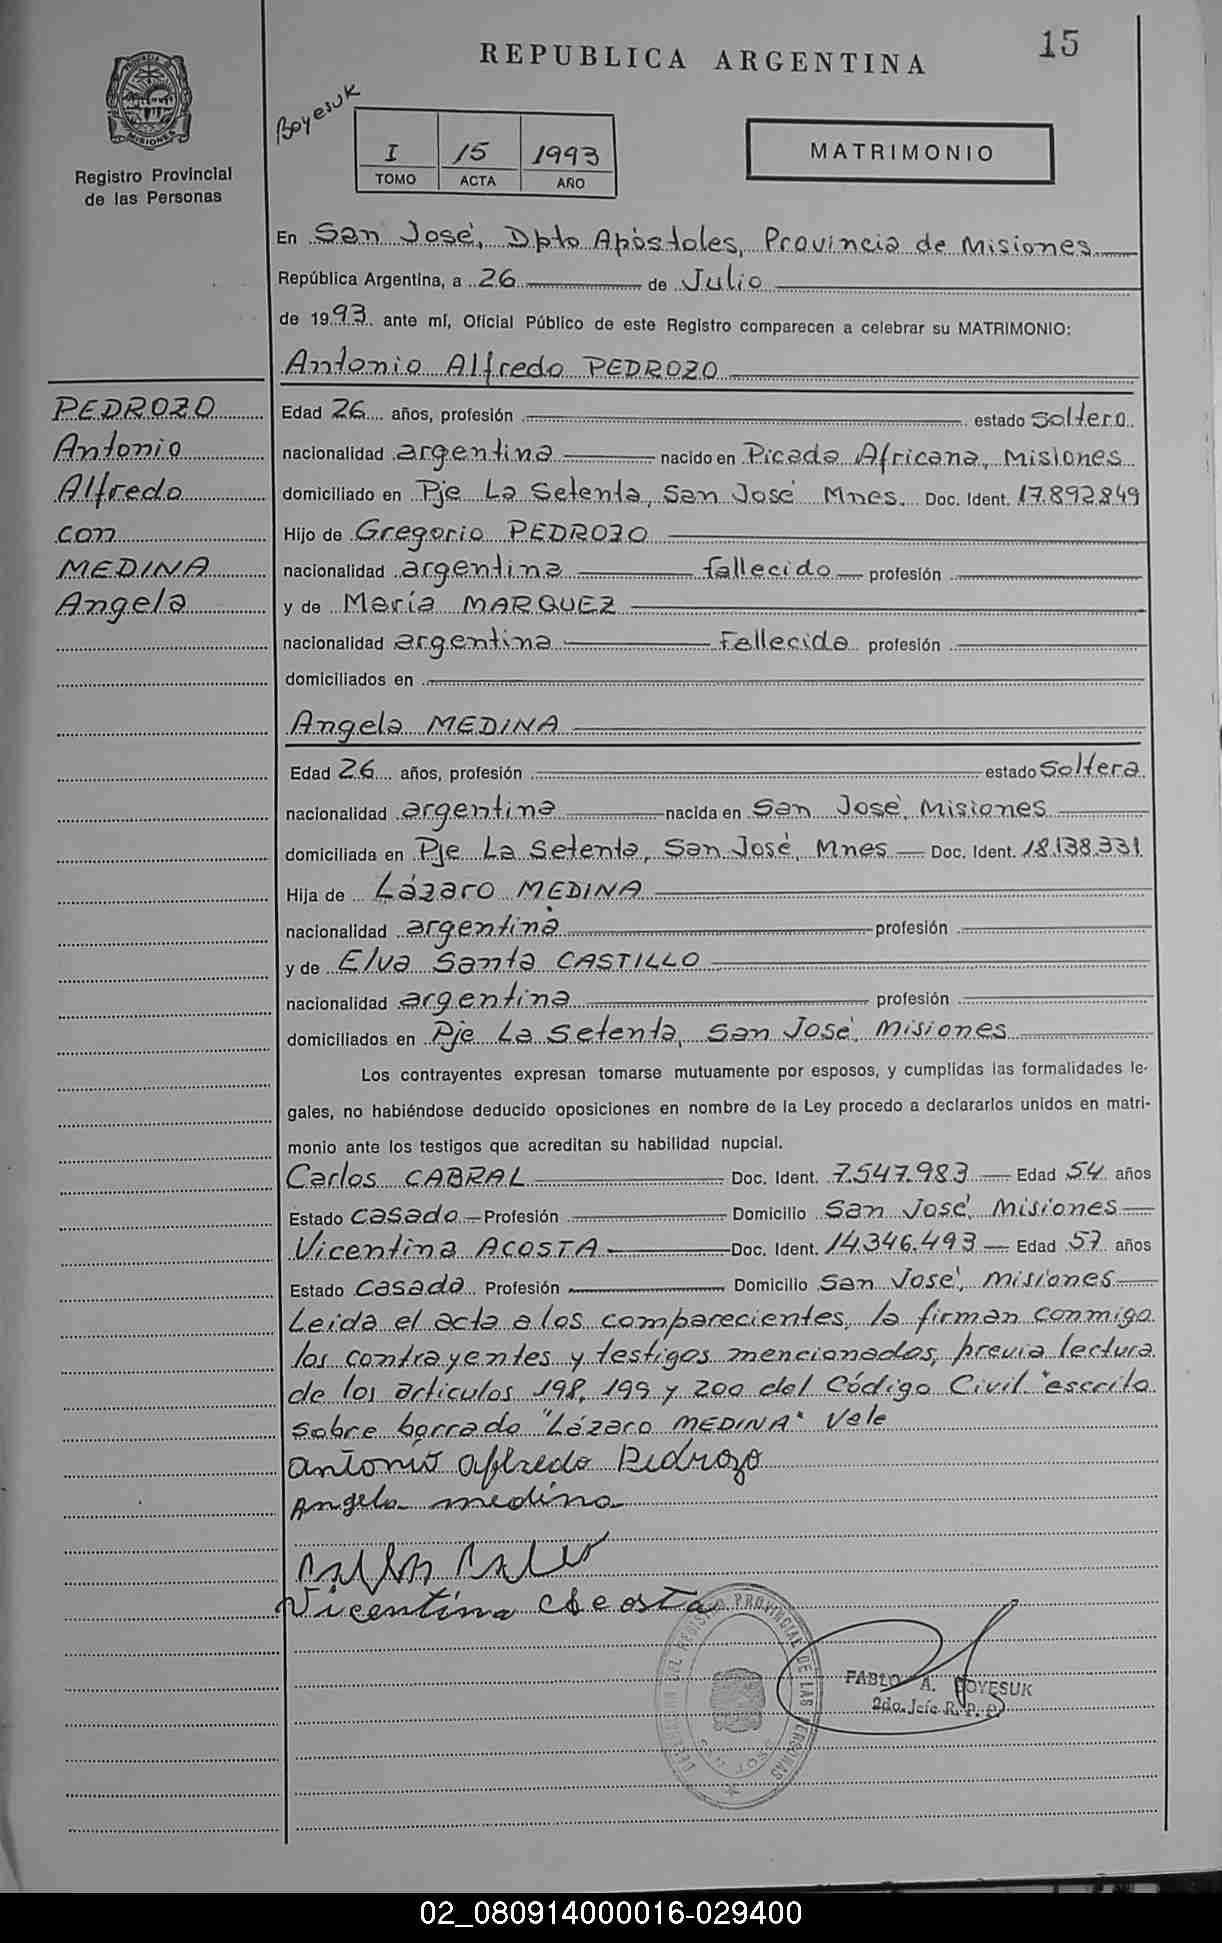 REPUBLICA ARGENTINA
15
PROVINCIA DE MISIONES
Registro Provincial
de las Personas
Boyesuk
I 15 1993
TOMO ACTA AÑO
MATRIMONIO
En San José, Dpto Apóstoles, Provincia de Misiones
República Argentina, a 26 de Julio
de 1993 ante mí, Oficial Público de este Registro comparecen a celebrar su MATRIMONIO:
Antonio Alfredo PEDROZO
PEDROZO
Antonio
Alfredo
con
MEDINA
Angela
Edad 26 años, profesión estado soltero
nacionalidad argentina nacido en Picada Africana, Misiones
domiciliado en Pje La Setenta, San José Mnes. Doc. Ident. 17.892.849
Hijo de Gregorio PEDROZO
nacionalidad argentina fallecido profesión
y de María MARQUEZ
nacionalidad argentina Fallecida profesión
domiciliados en
Angela MEDINA
Edad 26 años, profesión estado soltera
nacionalidad argentina nacida en San José, Misiones
domiciliada en Pje La Setenta, San José, Mnes Doc. Ident. 18.138.331
Hija de Lázaro MEDINA
nacionalidad argentina profesión
y de Elva Santa CASTILLO
nacionalidad argentina profesión
domiciliados en Pje La Setenta, San José, Misiones
Los contrayentes expresan tomarse mutuamente por esposos, y cumplidas las formalidades le-
gales, no habiéndose deducido oposiciones en nombre de la Ley procedo a declararlos unidos en matri-
monio ante los testigos que acreditan su habilidad nupcial.
Carlos CABRAL Doc. Ident. 7.547.983 Edad 54 años
Estado casado Profesión Domicilio San José, Misiones
Vicentina ACOSTA Doc. Ident. 14.346.493 Edad 57 años
Estado casada Profesión Domicilio San José, Misiones
Leida el acta a los comparecientes, la firman conmigo
los contrayentes y testigos mencionados, previa lectura
de los artículos 198, 199 y 200 del Código Civil "escrito
sobre borrado "Lázaro MEDINA" Vale
Antonio Alfredo Pedrozo
Angela medina
Vicentina Acosta
DELEGACION DEL REGISTRO PROVINCIAL DE LAS PERSONAS
SAN JOSE
PABLO A. BOYESUK
2do. Jefe R. P. P.
02_080914000016-029400